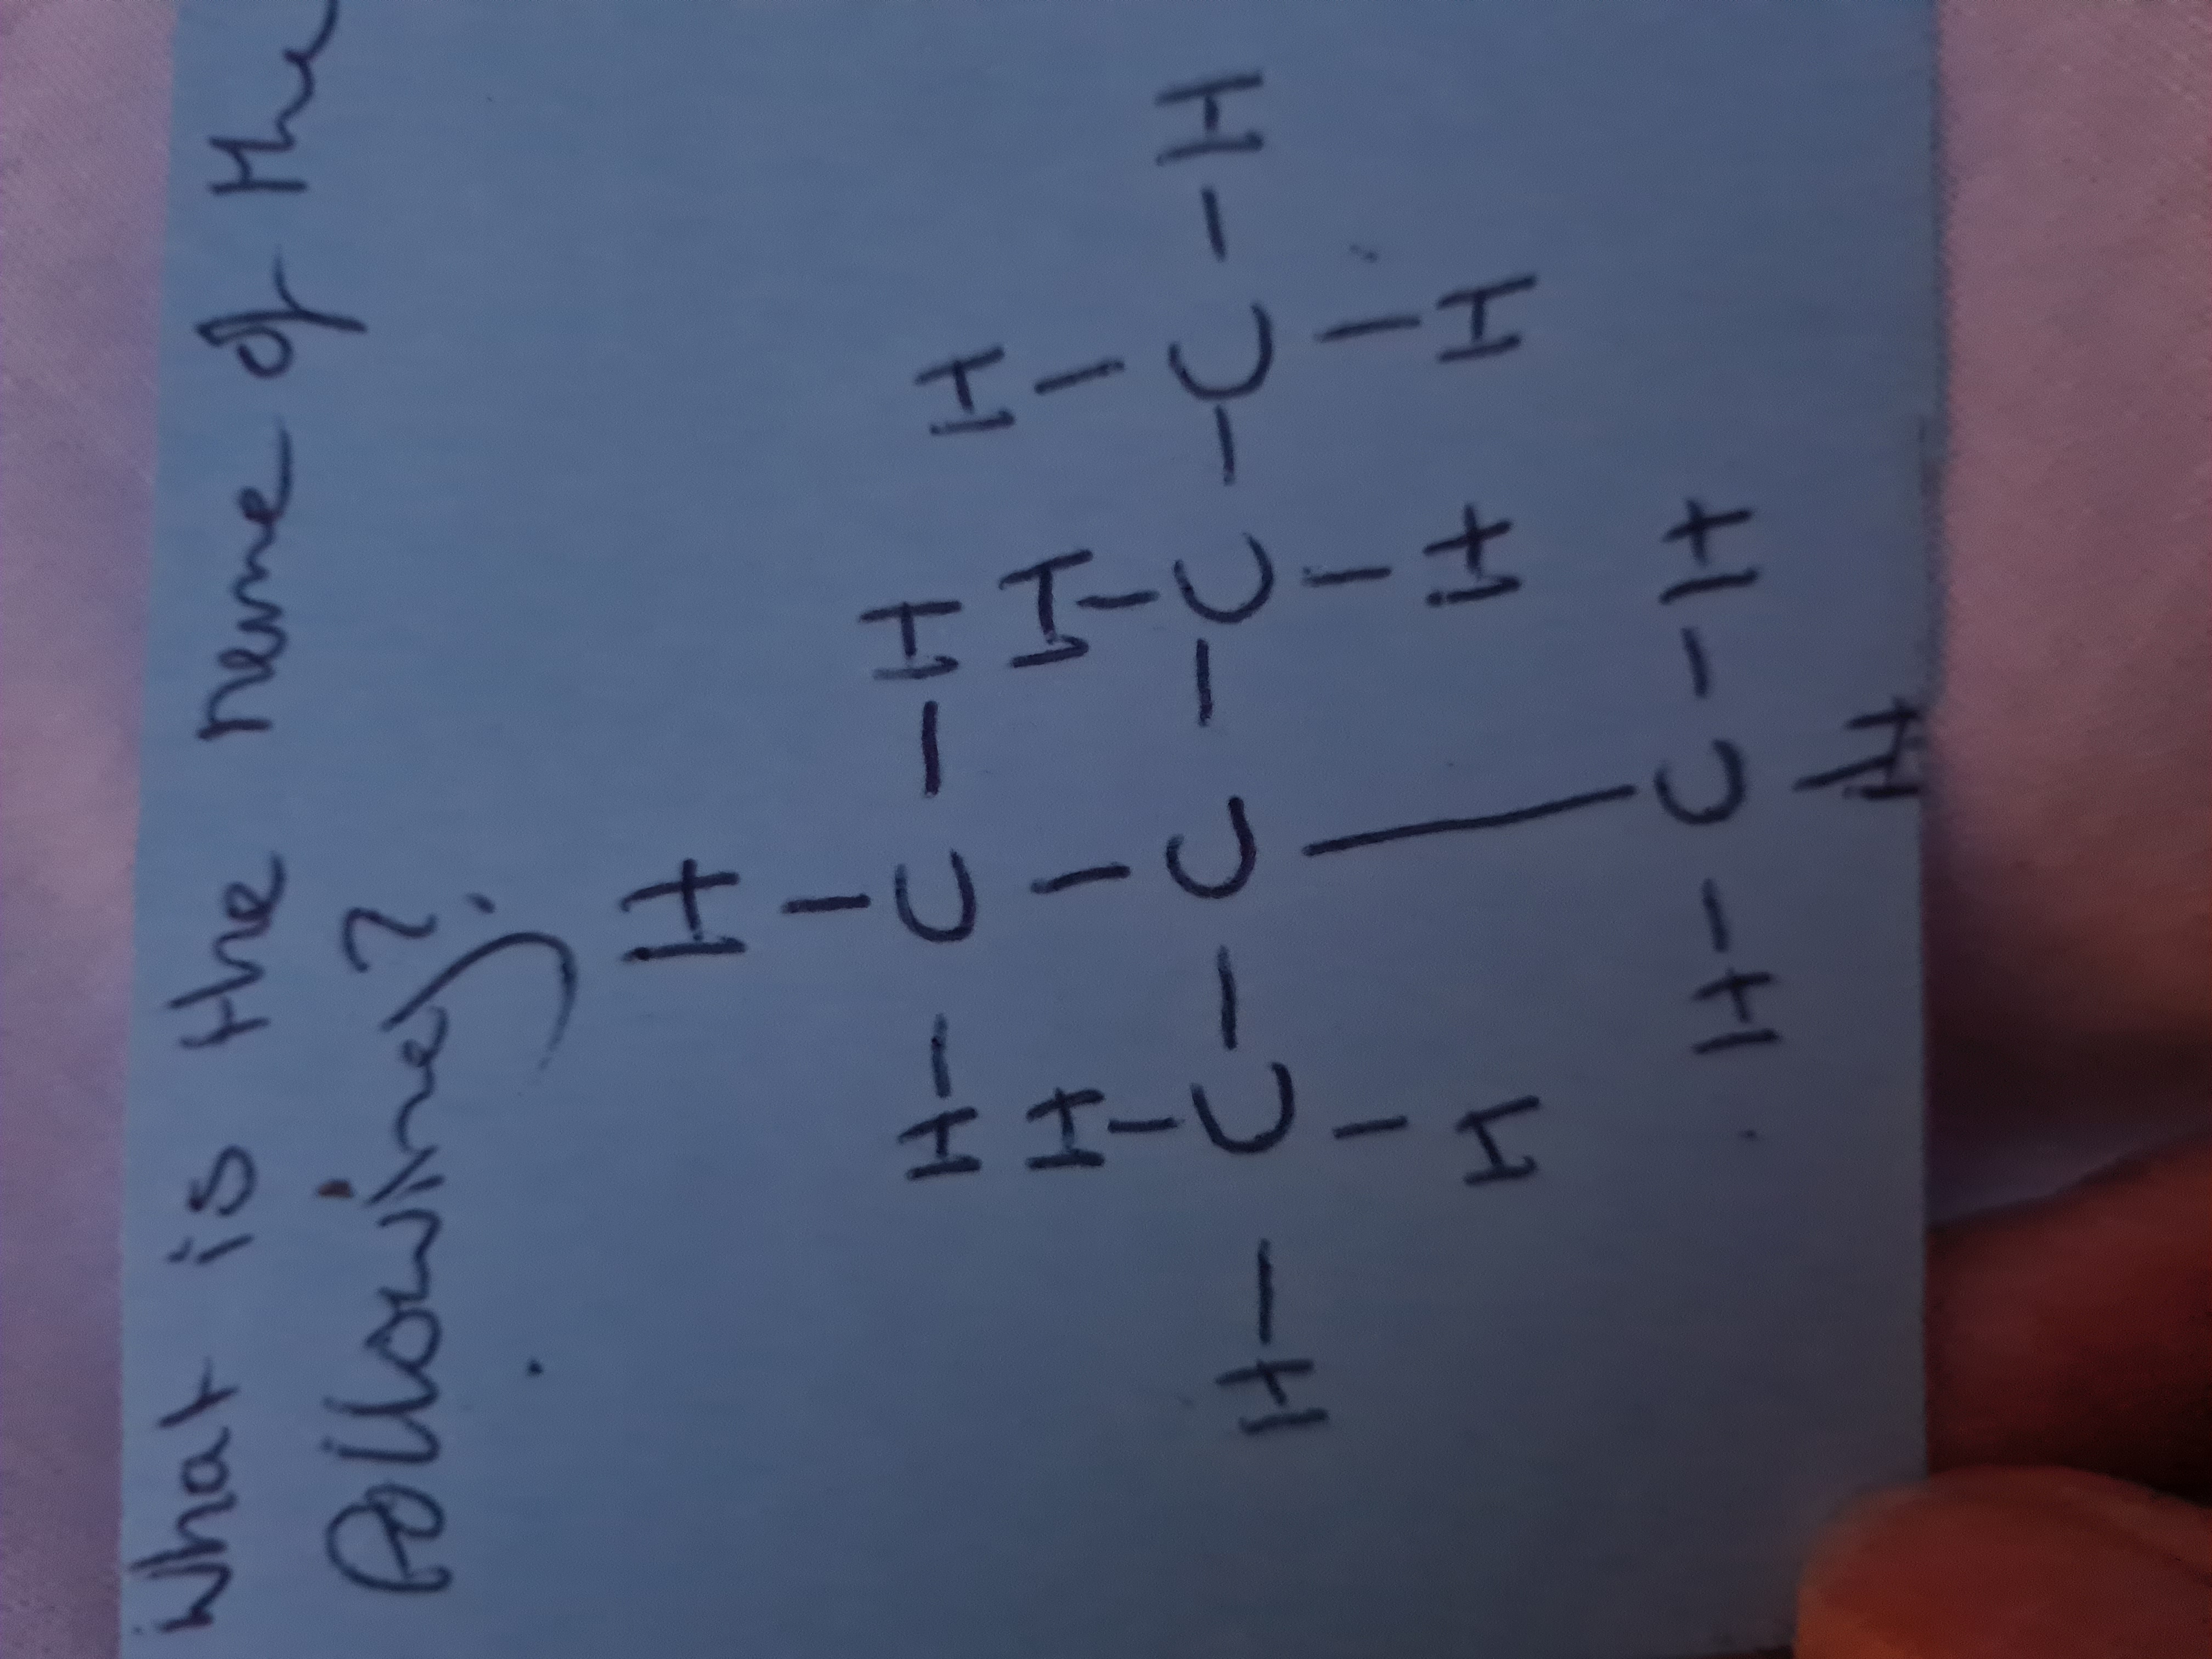 What is the name of the
following?
H
H - C - H H
H H
H - C - C - C - C - H
H H H
H - C - H
H